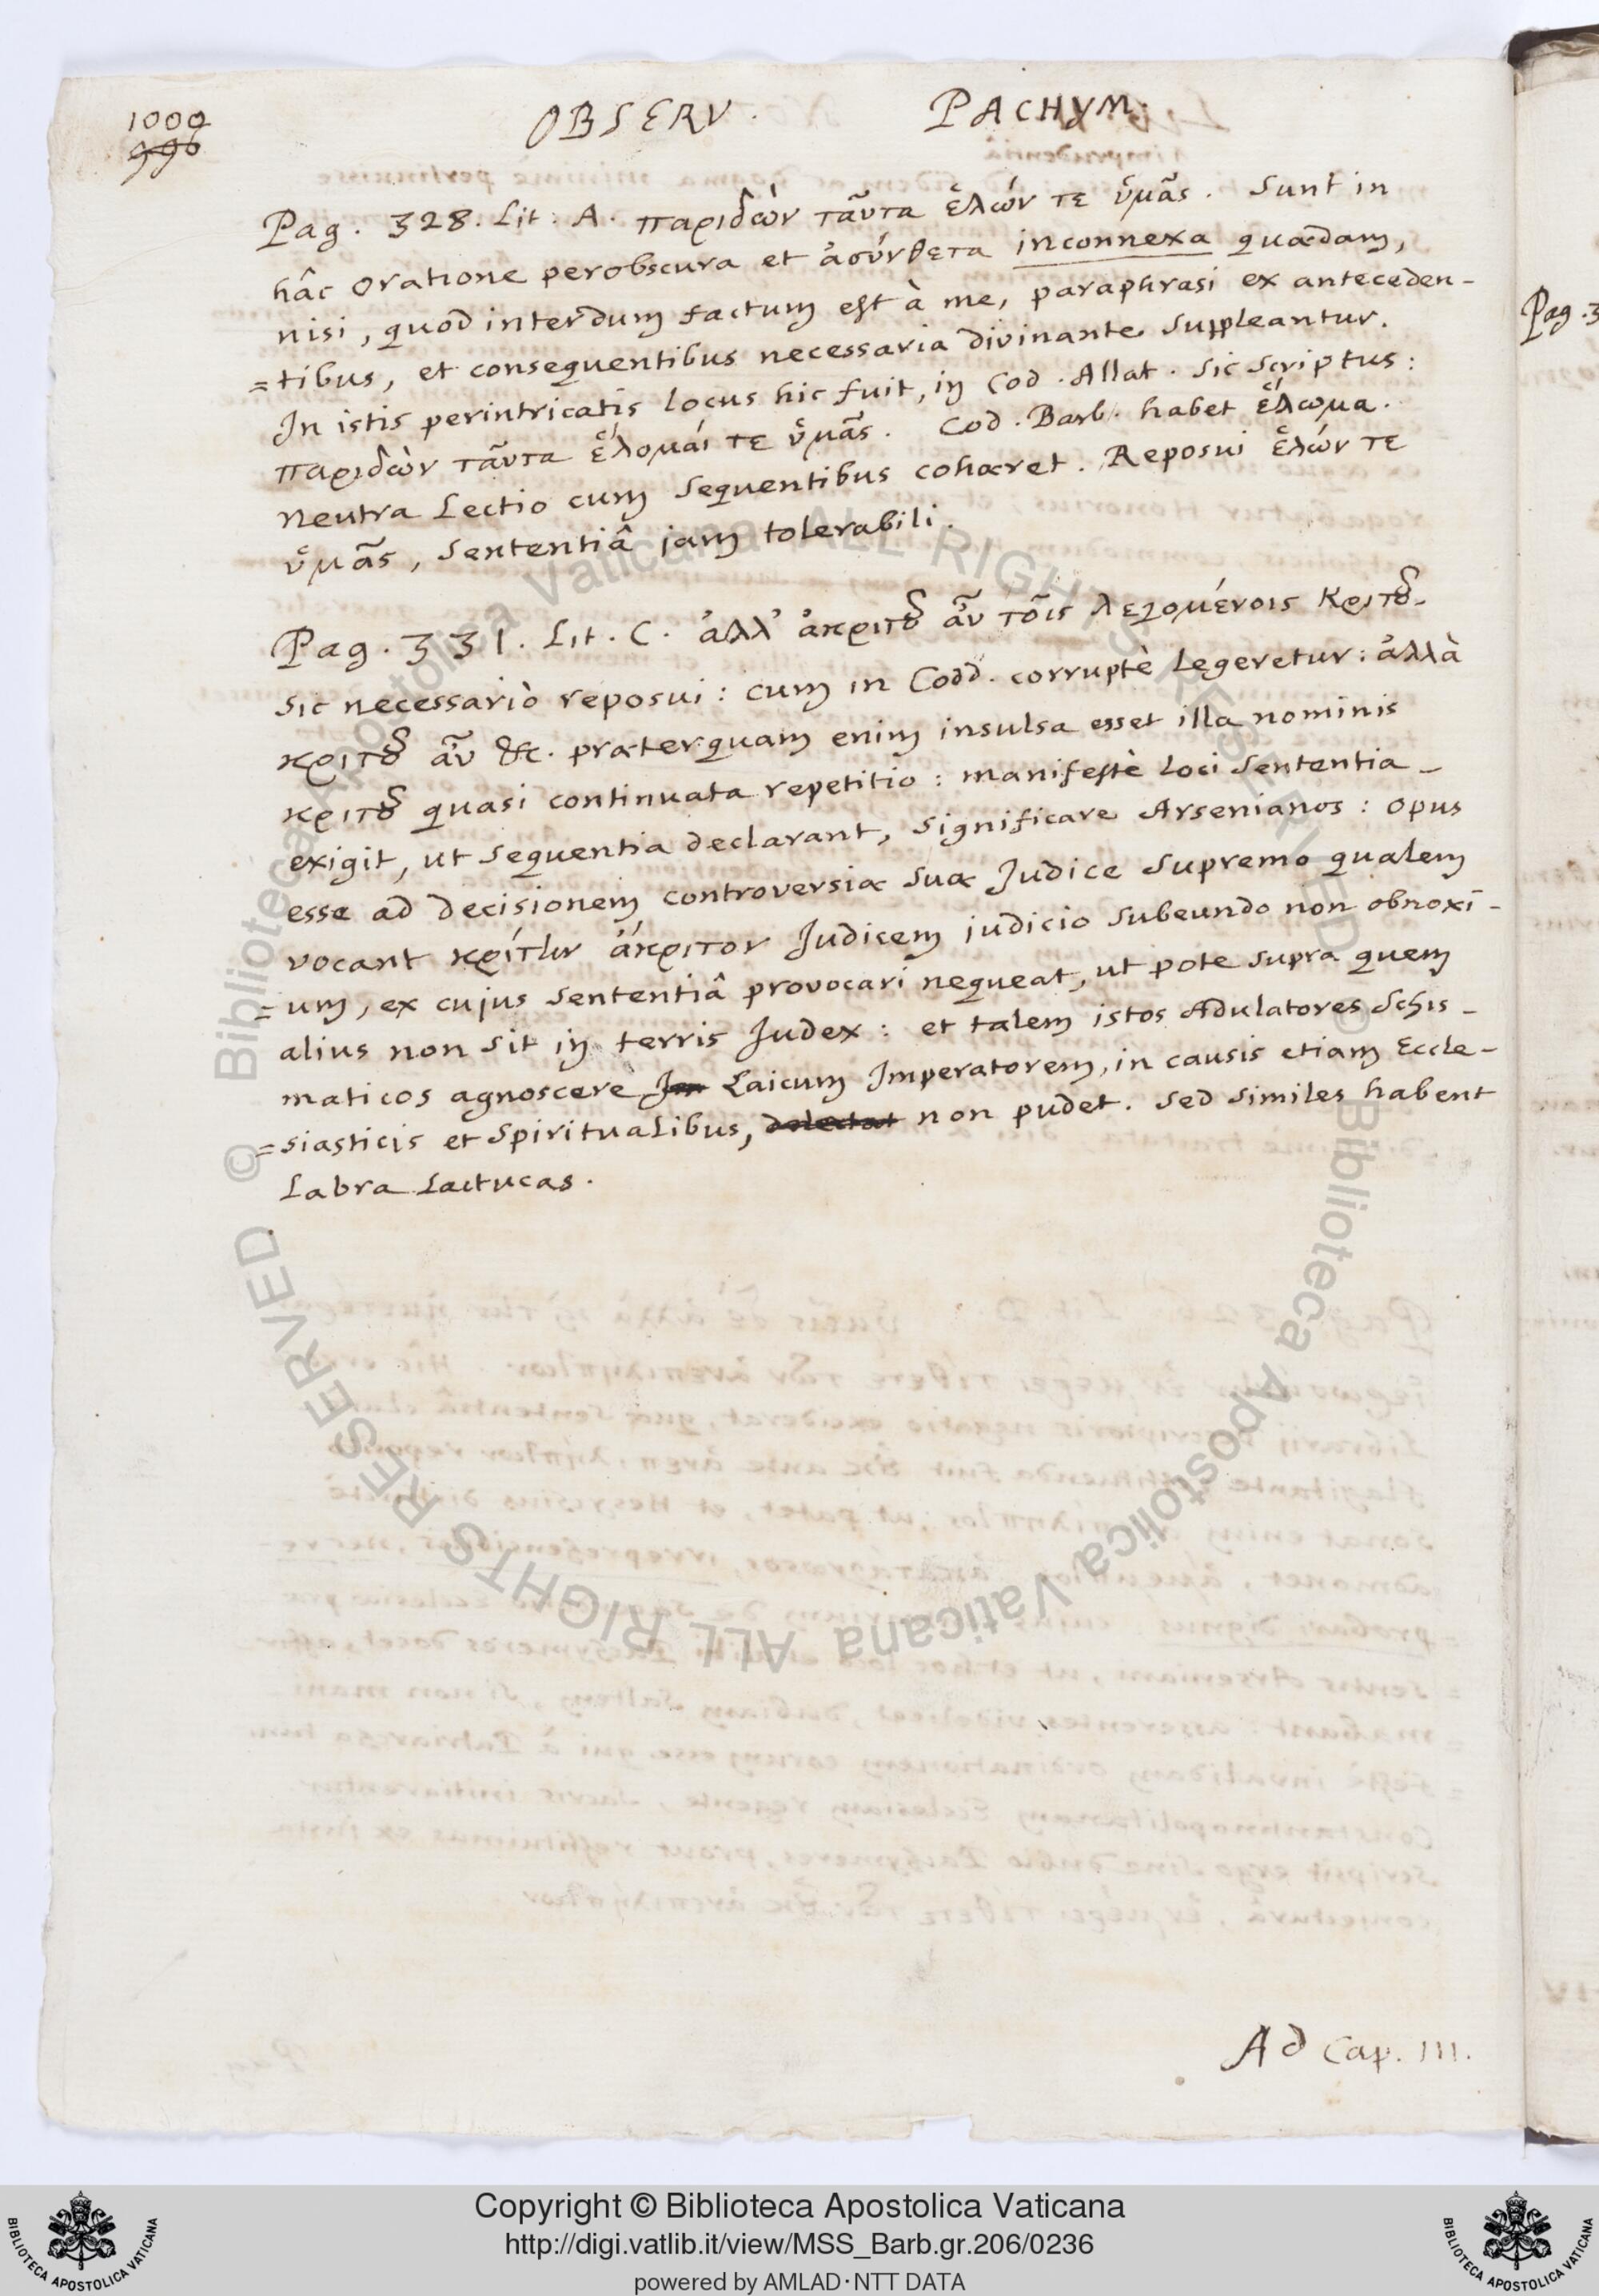 1000
996
OBSERV. PACHYM.
Pag. 328. Lit. A. παριδὼν ταῦτα ἑλών τε ὑμᾶς. Sunt in
hâc oratione perobscura et ἀσύνθετα inconnexa quædam,
nisi, quod interdum factum est à me, paraphrasi ex anteceden-
=tibus, et consequentibus necessaria divinante suppleantur.
In istis perintricatis locus hic fuit, in Cod. Allat. sic scriptus:
παριδὼν ταῦτα ἑλομαί τε ὑμᾶς. Cod. Barb. habet ἑλωμα.
Neutra Lectio cum sequentibus cohæret. Reposui ἑλών τε
ὑμᾶς, sententiâ jam tolerabili.
Pag. 331. Lit. C. ἀλλ' ἀκρίτου ἂν τοῖς λεγομένοις κριτοῦ.
Sic necessariò reposui: cum in Codd. corruptè Legeretur: ἀλλὰ
κριτοῦ ἂν &c. præterquam enim insulsa esset illa nominis
κριτοῦ quasi continuata repetitio: manifestè Loci sententia
exigit, ut sequentia declarant, significare Arsenianos: opus
esse ad decisionem controversiæ suæ Judice supremo qualem
vocant κρίτην ἄκριτον Judicem judicio subeundo non obnoxi-
=um, ex cujus sententiâ provocari nequeat, ut pote supra quem
alius non sit in terris Judex: et talem istos Adulatores Schis-
maticos agnoscere Laicum Imperatorem, in causis etiam Eccle-
=siasticis et Spiritualibus, delectat non pudet. Sed similes habent
Labra Lactucas.
Ad Cap. III.
Pag. 3
© Biblioteca Apostolica Vaticana ALL RIGHTS RESERVED © Biblioteca Apostolica Vaticana ALL RIGHTS RESERVED
BIBLIOTECA APOSTOLICA VATICANA
Copyright © Biblioteca Apostolica Vaticana
http://digi.vatlib.it/view/MSS_Barb.gr.206/0236
powered by AMLAD·NTT DATA
BIBLIOTECA APOSTOLICA VATICANA